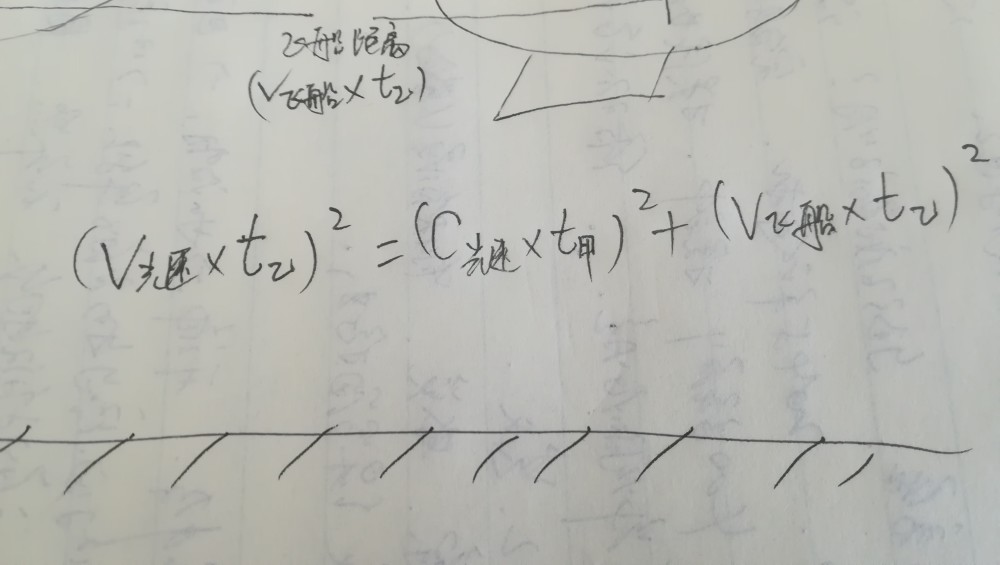 飞船距离
(V飞船×t乙)
(V光速×t乙)² = (C光速×t甲)² + (V飞船×t乙)²